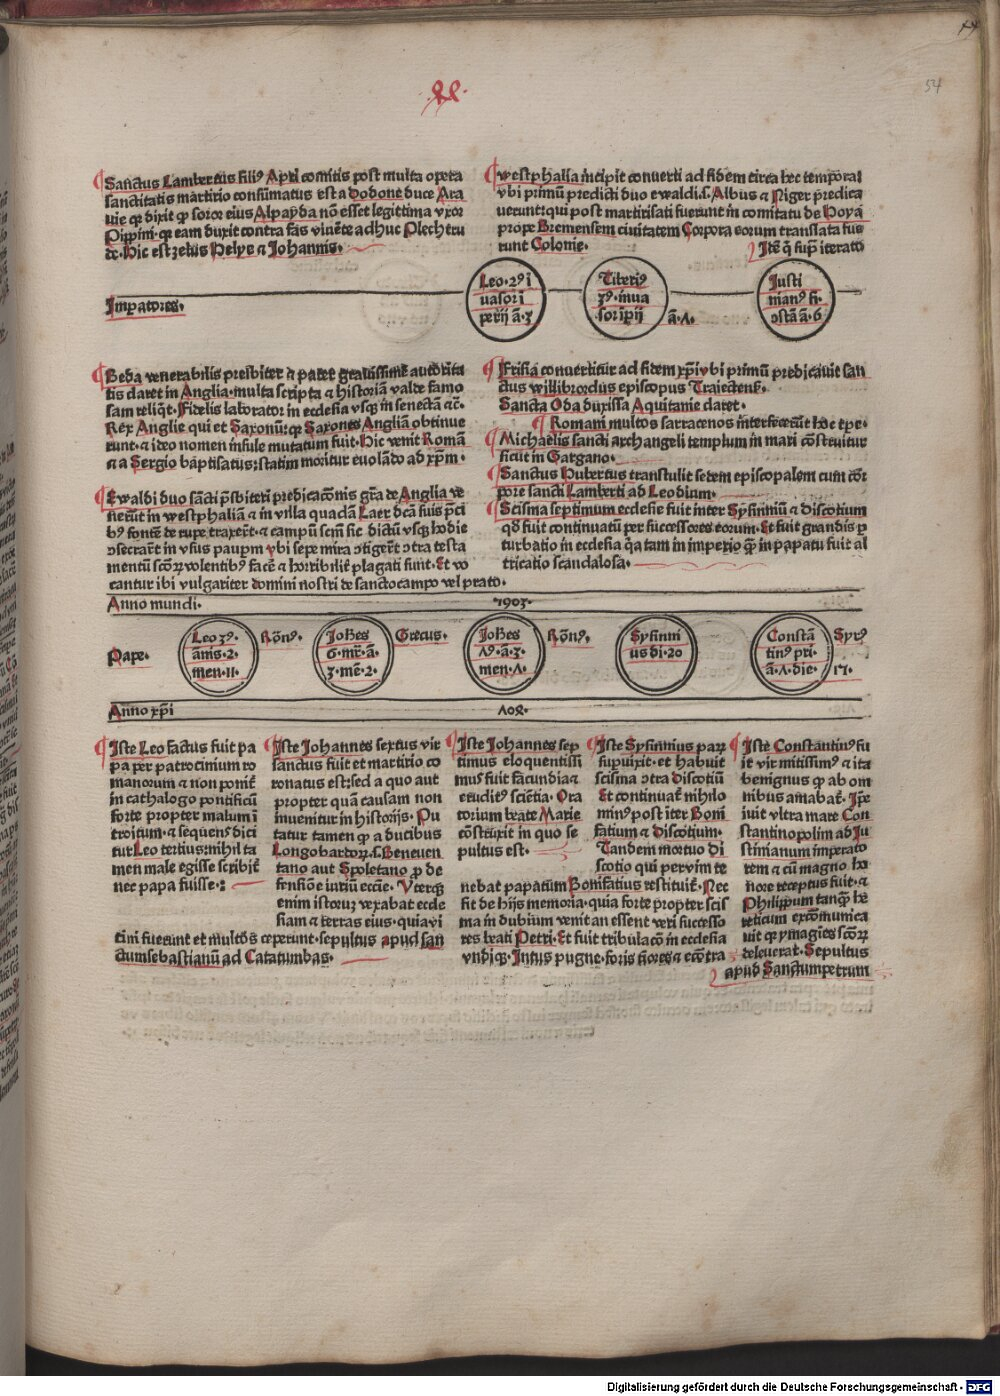 54
Sanctus Lambertus fili⁹ Apri comitis post multa opera
sanctitatis martirio consūmatus est a Dodone duce Ara
uie qꝛ dixit ꝙ soror eius Alpayda nō esset legittima vxor
Pippini· qꝛ eam duxit contra fas viuēte adhuc Plechtru
de· Hic est zelus Helye ⁊ Johannis·
westphalia incipit conuerti ad fidem circa hec tempora
vbi primū predicti duo ewaldi·s· Albus ⁊ Niger predica
uerunt: qui post martirisati fuerunt in comitatu de Hoya
prope Bremensem ciuitatem Corpora eorum translata fue
runt Colonie·
Itē q̄ supͣ iterato
Imꝑatores·
Leo· 2⁹ i
uasor i
perij ā· 3
Tiberi⁹
3⁹· inua
sor īꝑij
ā· ʌ·
Justi
man⁹ fi·
ↄstā ā· 6
Beda venerabilis presbiter ⁊ pater gratissime autorita
tis claret in Anglia· multa scripta ⁊ historiā valde famo
sam reliqt̄· Fidelis laborator in ecclesia vsqꝫ in senectā ⁊c̄·
Rex Anglie qui et Saxonū: qꝛ Saxones Angliā obtinue
runt· ⁊ ideo nomen insule mutatum fuit· Hic venit Romā
⁊ a Sergio baptisatus: statim moritur euolādo ad xp̄m·
Ewaldi duo sācti p̄sbiteri predicacōnis gr̄a de Anglia ve
nerūt in westphaliā ⁊ in villa quadā Laer dc̄a suis p̄ci
b⁹ fontē de rupe traxerūt· ⁊ campū scm̄ sic dictū vsqꝫ hodie
ↄsecrarēt in vsus pauꝑum vbi sepe mira ↄtigerūt ↄtra testa
mentū scōꝝ volentib⁹ facē ⁊ horribilit̄ plagati sunt· Et vo
cantur ibi vulgariter domini nostri de sanctocampo vel prato·
Frisia conuertitur ad fidem xp̄i vbi primū predicauit san
ctus willibrordus episcopus Traiectens̄·
Sancta Oda duxissa Aquitanie claret·
Romani multos sarracenos interfecerūt hoc tꝑe·
Michaelis sancti archangeli templum in mari cōstruitur
sicut in Gargano·
Sanctus Hubertus transtulit sedem episcopalem cum cor
pore sancti Lamberti ad Leodium·
Scisma septimum ecclesie fuit inter Sysinniū ⁊ discotium
qd̄ fuit continuatū per successores eorum· Et fuit grandis ꝑ
turbatio in ecclesia q̄a tam in imperio qͣ̄ in papatu fuit al
tricatio scandalosa·
Anno mundi·
ʌ903·
Pape·
Leo 3⁹·
ānis· 2·
men· 11·
Rōn⁹·
Johēs
6· mr̄· ā·
3· mē· 2·
Grecus·
Johēs
ʌ⁹· ā· 3·
men· ʌ·
Rōn⁹·
Sysinni
us di· 20
Constā
tin⁹ pri·
ā· ʌ· die·
Syr⁹
17·
Anno xp̄i
ʌ08·
Iste Leo factus fuit pa
pa per patrocinium ro
manorum ⁊ non ponit̄
in cathalogo pontificū
forte propter malum ī
troitum· ⁊ sequens dici
tur Leo tertius: nihil ta
men male egisse scribit̄
nec papa fuisse·:
Iste Johannes sextus vir
sanctus fuit et martirio co
ronatus est: sed a quo aut
propter quā causam non
inuenitur in historijs· Pu
tatur tamen ꝙ a ducibus
Longobardoꝝ·s· Beneuen
tano aut Spoletano ꝓ de
fensiōe iuriū eccīe· Vterqꝫ
enim istorū vexabat eccle
siam ⁊ terras eius· quia vi
cini fuerunt et multōs ceperunt· sepultus apud san
ctumsebastianū ad Catatumbas·
Iste Johannes sep
timus eloquentissi
mus fuit facundia ⁊
eruditꝰ sciētia· Ora
torium beate Marie
cōstruxit in quo se
pultus est·
Iste Sysinnius parū
supuixit· et habuit
scisma ↄtra discotiū
Et continuat̄ nihilo
min⁹ post iter Boni
fatium ⁊ Discotium·
Tandem mortuo di
scotio qui peruim te
nebat papatum Bonifatius restituit̄· Nec
fit de hijs memoria· quia forte propter scis
ma in dubium venit an essent veri successo
res beati Petri· Et fuit tribulacō in ecclesia
vndiqꝫ· Intus pugne· foris fiores ⁊ ecōtra
Iste Constantin⁹ fu
it vir mitissim⁹ ⁊ ita
benignus ꝙ ab om
nibus amabat̄· Ip̄e
iuit vltra mare Con
stantinopolim ad Ju
stinianum imperato
rem ⁊ cū magno ho
nore receptus fuit· ⁊
Philippum tanqͣ̄ he
reticum excōmunica
uit qꝛ ymagīes scōꝝ
deleuerat· Sepultus
apud Sanctumpetrum
Digitalisierung gefördert durch die Deutsche Forschungsgemeinschaft · DFG